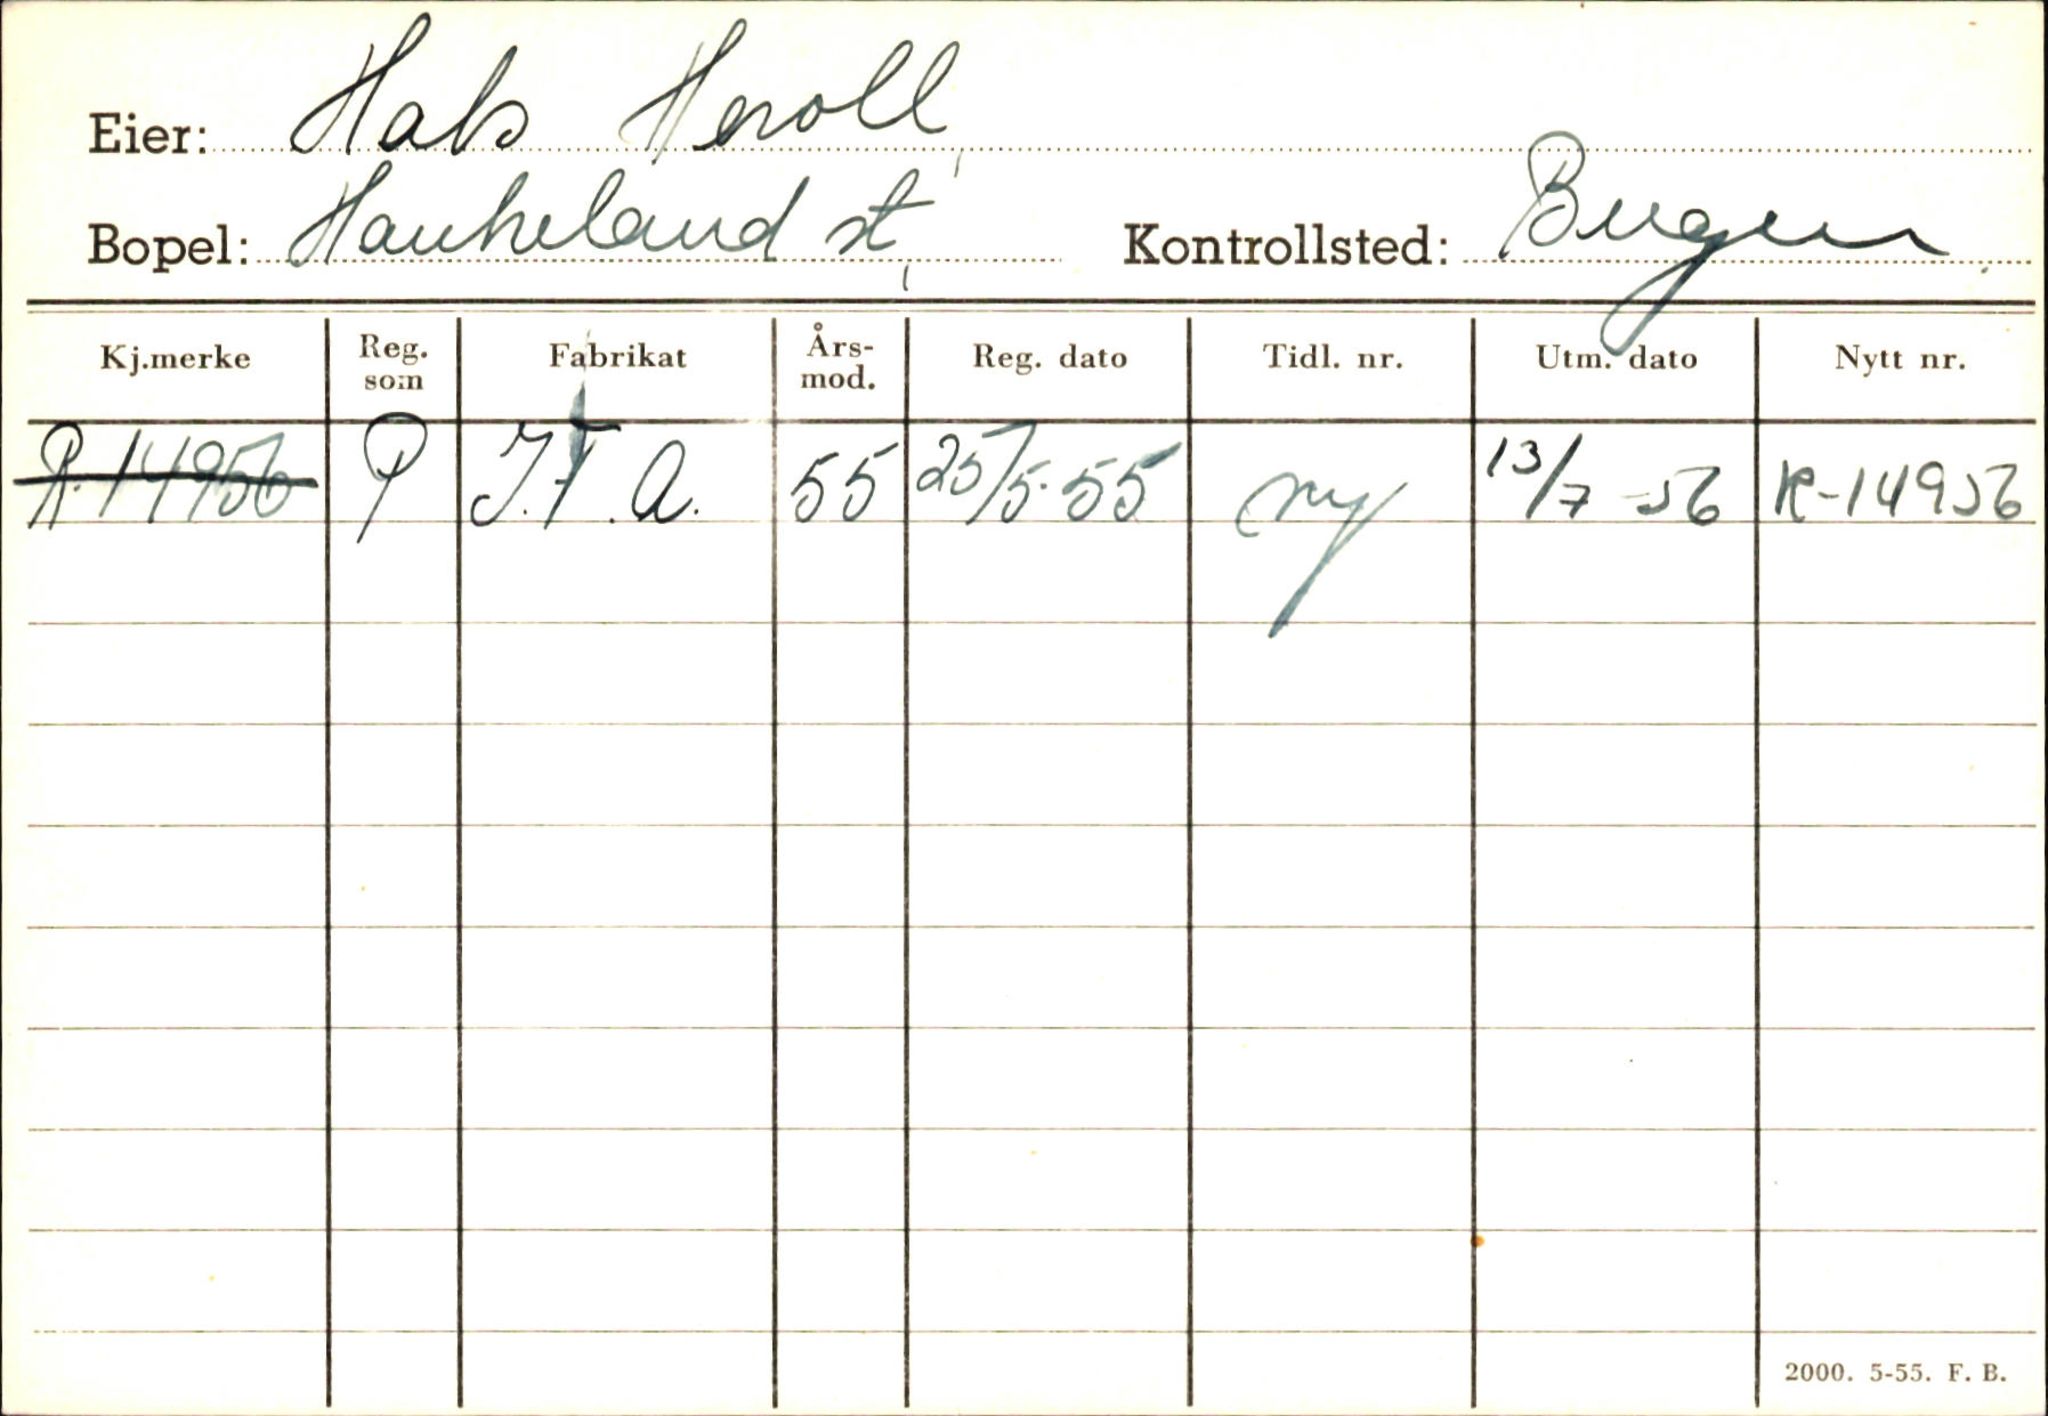 Eier: Hals Heroll
Bopel: Haukeland st. Kontrollsted: Bergen
Kj.merke Reg. som Fabrikat Års-mod. Reg. dato Tidl. nr. Utm. dato Nytt nr.
R-14956 P I.F.A. 55 25/5-55 ny 13/7-56 R-14956
2000. 5-55. F. B.